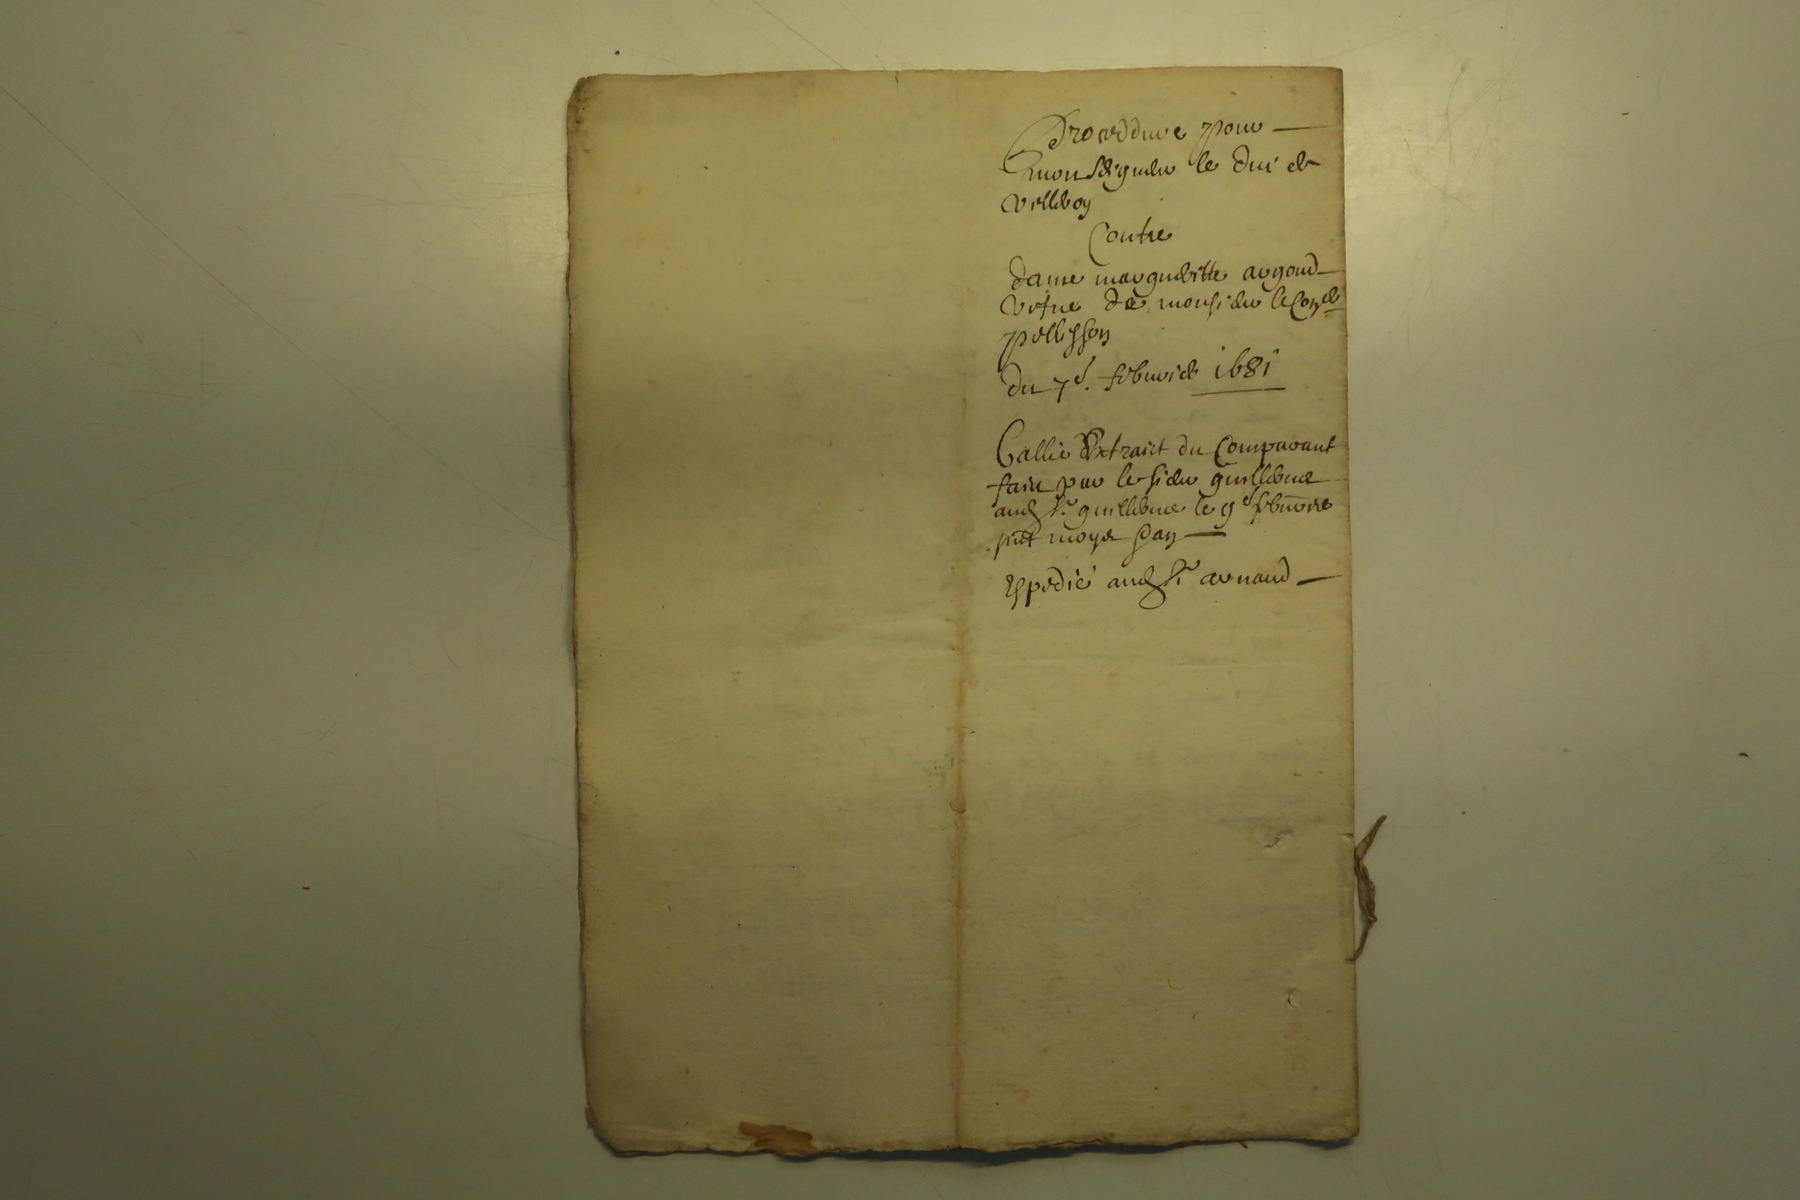 Procedure pour
monseigneur le duc de
Villeroy
Contre
dame margueritte argoud
vefue de monsieur le Con.er
pellisson
du 7e. febvrier 1681
Baillé Extraict du Comparant
faict par le sieur guilleme
aud sr. guilleme le 9e febvrier
pnt moys et an
Expedié aud sr arnaud